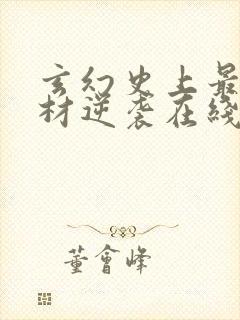 玄幻史上最
材逆袭在綫
董會峰